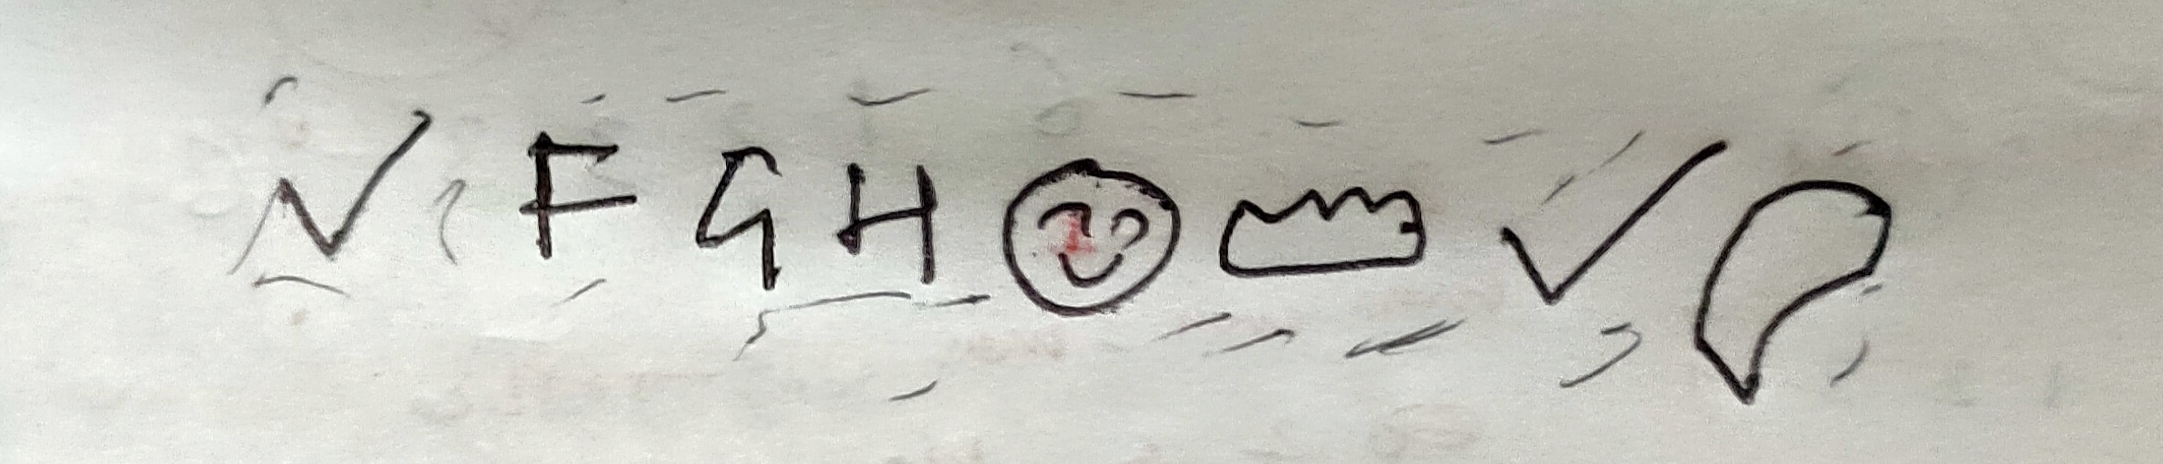 ✓ F G H ☺ ✓